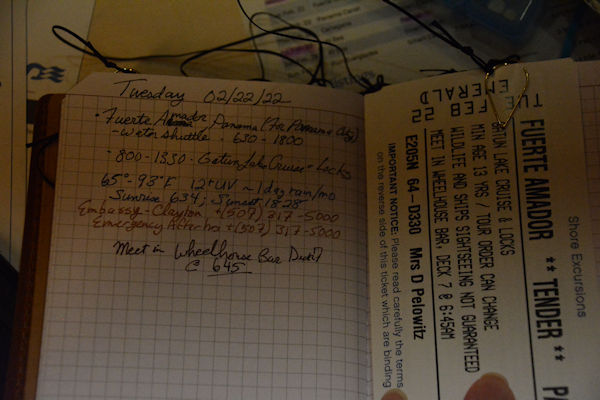 Tuesday 02/22/22
• Fuerte Amador, Panama (for Panama City)
- water shuttle • 630 - 1800
• 800 - 1330 - Gatun Lake Cruise & Locks
65° - 93°F 12+ UV ~ 1 day rain/mo
Sunrise 634; Sunset 18:28
Embassy - Clayton +(507) 317-5000
Emergency Attacha +(507) 317-5000
Meet in Wheelhouse Bar Deck 7
@ 645
Shore Excursions
FUERTE AMADOR ** TENDER ** PA
TUE FEB 22
EMERALD
GATUN LAKE CRUISE & LOCKS
MIN AGE 13 YRS / TOUR ORDER CAN CHANGE
WILDLIFE AND SHIPS SIGHTSEEING NOT GUARANTEED
MEET IN WHEELHOUSE BAR, DECK 7 @ 6:45AM
E205N 64 - D330 Mrs D Pelowitz
IMPORTANT NOTICE: Please read carefully the terms
on the reverse side of this ticket which are binding